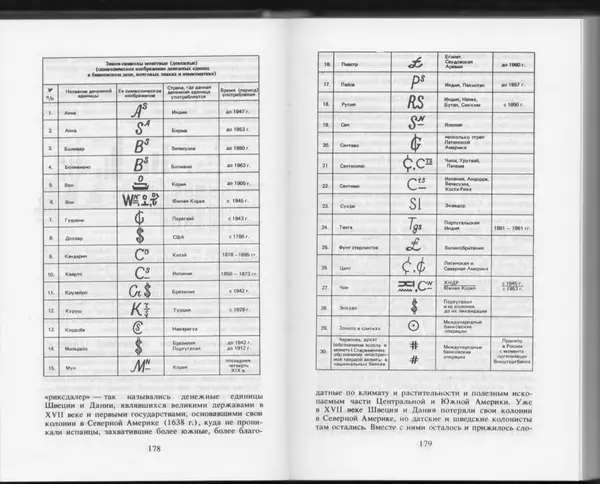 Знаки-символы монетные (денежные)
(символическое изображение денежных единиц
в банковском деле, почтовых знаках и нумизматике)
№ п/п Название денежной единицы Ее символическое изображение Страна, где данная денежная единица употребляется Время (период) употребления
1. Анна Aˢ Индия до 1947 г.
2. Анна Бирма до 1953 г.
3. Боливар Bˢ Венесуэла до 1880 г.
4. Боливиано Bˢ Боливия до 1963 г.
5. Вон Корея до 1905 г.
6. Вон Южная Корея с 1945 г.
7. Гуарани ₲ Парагвай с 1943 г.
8. Доллар $ США с 1786 г.
9. Кандарин Китай 1878 – 1895 гг.
10. Кварто Испания 1850 – 1873 гг.
11. Крузейро Cr $ Бразилия с 1942 г.
12. Куруш Турция с 1929 г.
13. Кордоба Никарагуа
14. Мильрейс $ Бразилия Португалия до 1942 г. до 1912 г.
15. Мун Корея последняя четверть XIX в.
«риксдалер» — так назывались денежные единицы
Швеции и Дании, являвшихся великими державами в
XVII веке и первыми государствами, основавшими свои
колонии в Северной Америке (1638 г.), куда не прони-
кали испанцы, захватившие более южные, более благо-
178
16. Пиастр £ Египет, Саудовская Аравия до 1960 г.
17. Пайса Pˢ Индия, Пакистан до 1957 г.
18. Рупия RS Индия, Непал, Бутан, Сикким с 1950 г.
19. Сен Япония
20. Сентаво несколько стран Латинской Америки
21. Сентесимо Чили, Уругвай, Панама
22. Сентимо Испания, Андорра, Венесуэла, Коста-Рика
23. Сукре S/ Эквадор
24. Танга Tgs Португальская Индия 1881 – 1961 гг.
25. Фунт стерлингов £ Великобритания
26. Цент Латинская и Северная Америка
27. Чон КНДР Южная Корея с 1945 г. с 1953 г.
28. Эскудо $ Португалия и ее колонии до их ликвидации
29. Золото в слитках ⊙ Международные банковские операции
30. Червонец, рубль (обозначение золота в монете) Современное обозначение иностранной твердой валюты в национальных банках # # Международные банковские операции Принято в России с момента организации Внешторгбанка
датные по климату и растительности и полезным иско-
паемым части Центральной и Южной Америки. Уже
в XVII веке Швеция и Дания потеряли свои колонии
в Северной Америке, но датские и шведские колонисты
там остались. Вместе с ними осталось и прижилось сло-
179